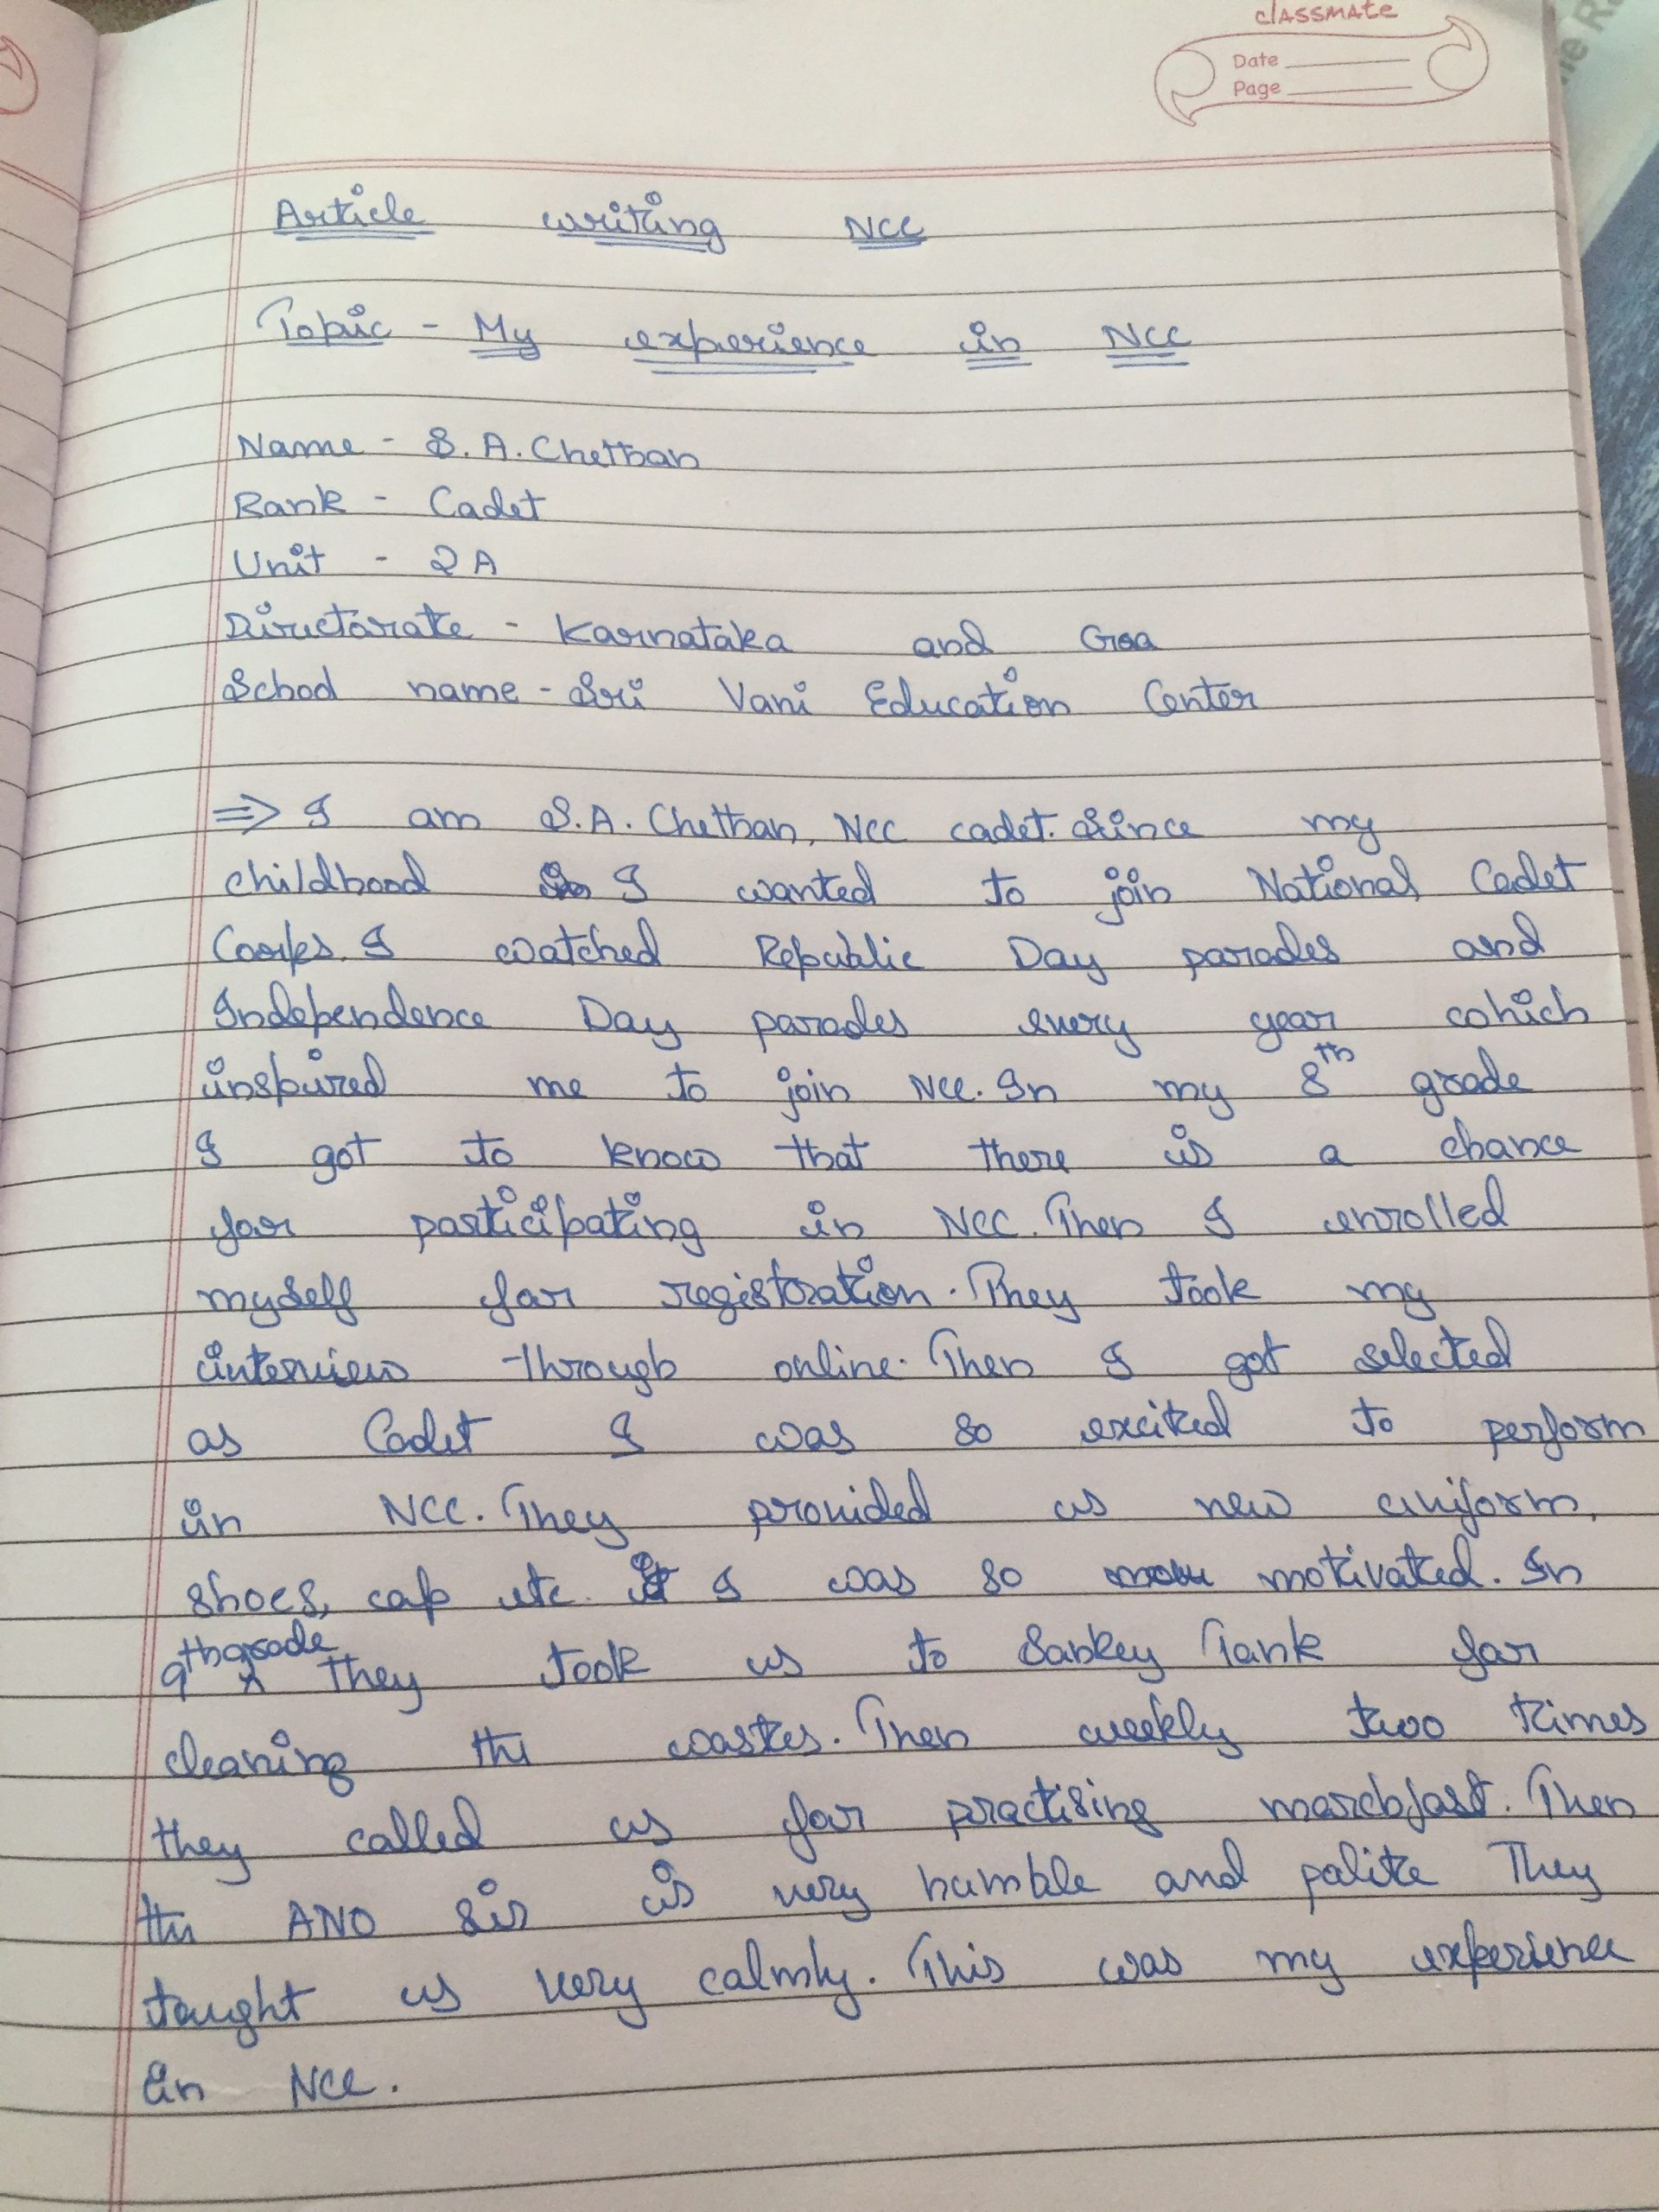 classmate
Date
Page
Article writing NCC
Topic - My experience in NCC
Name - S. A. Chethan
Rank - Cadet
Unit - 2A
Directorate - Karnataka and Goa
School name - Sri Vani Education Center
⇒ I am S.A. Chethan, NCC cadet. Since my
childhood I wanted to join National Cadet
Corps. I watched Republic Day parades and
Independence Day parades every year which
inspired me to join NCC. In my 8th grade
I got to know that there is a chance
for participating in NCC. Then I enrolled
myself for registration. They took my
interview through online. Then I got selected
as Cadet I was so excited to perform
in NCC. They provided us new uniform,
shoes, cap etc. I was so motivated. In
9th grade they took us to Sankey Tank for
cleaning the wastes. Then weekly two times
they called us for practising marchfast. Then
the ANO sir is very humble and polite They
taught us very calmly. This was my experience
in NCC.